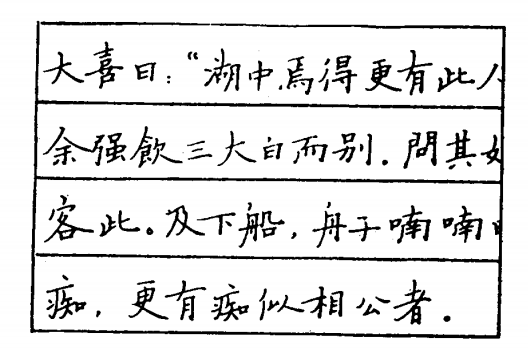 大喜曰：“湖中焉得更有此
余强飲三大白而别．問其
客此。及下船，舟子喃喃
痴，更有痴似相公者．